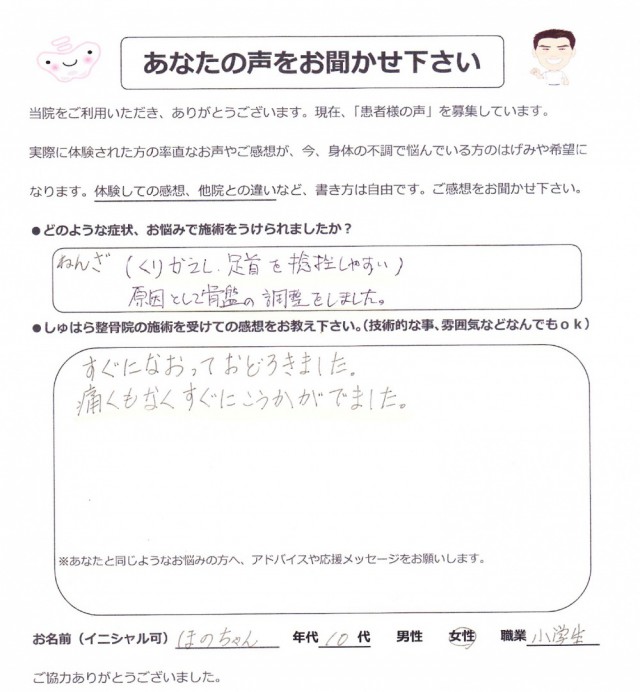 あなたの声をお聞かせ下さい
当院をご利用いただき、ありがとうございます。現在、「患者様の声」を募集しています。
実際に体験された方の率直なお声やご感想が、今、身体の不調で悩んでいる方のはげみや希望に
なります。体験しての感想、他院との違いなど、書き方は自由です。ご感想をお聞かせ下さい。
●どのような症状、お悩みで施術をうけられましたか？
ねんざ (くりかえし、足首を捻挫しやすい)
原因として骨盤の調整をしました。
●しゅはら整骨院の施術を受けての感想をお教え下さい。（技術的な事、雰囲気などなんでもｏｋ）
すぐになおっておどろきました。
痛くもなくすぐにこうかがでました。
※あなたと同じようなお悩みの方へ、アドバイスや応援メッセージをお願いします。
お名前（イニシャル可） ほのちゃん 年代 10 代 男性 女性 職業 小学生
ご協力ありがとうございました。